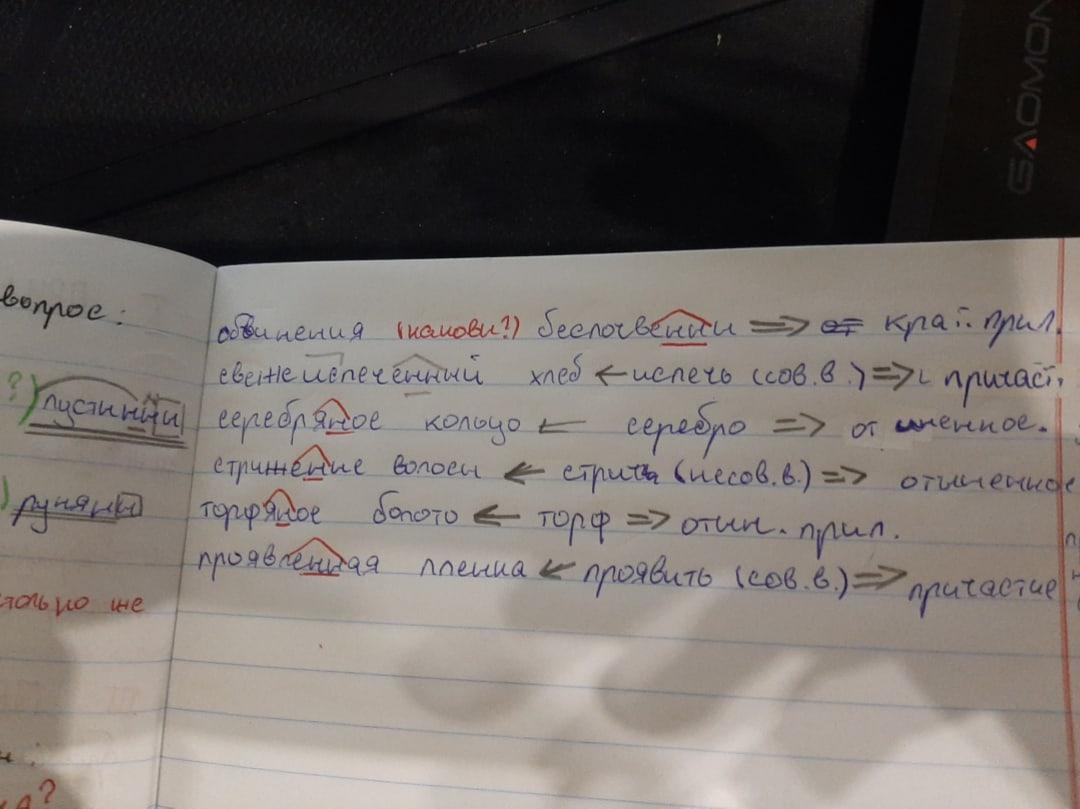 GAOMON
вопрос:
?) пустынны
) румяны
только же
?
обвинения (каковы?) беспочвенны => крат. прил.
свежеиспечённый хлеб ← испечь (сов.в.) => причаст.
серебряное кольцо ← серебро => отыменное.
стриженые волосы ← стричь (несов.в.) => отыменное
торфяное болото ← торф => отым. прил.
проявленная пленка ← проявить (сов.в.) => причастие